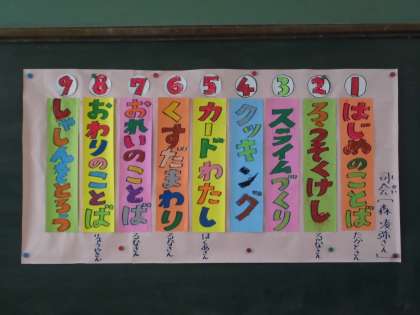 司会〔森 湊弥さん〕
1 はじめのことば
たかとさん
2 ろうそくけし
3 スライムづくり
4 クッキング
5 カードわたし
6 くすだまわり
7 おれいのことば
8 おわりのことば
9 しゃしんをとろう